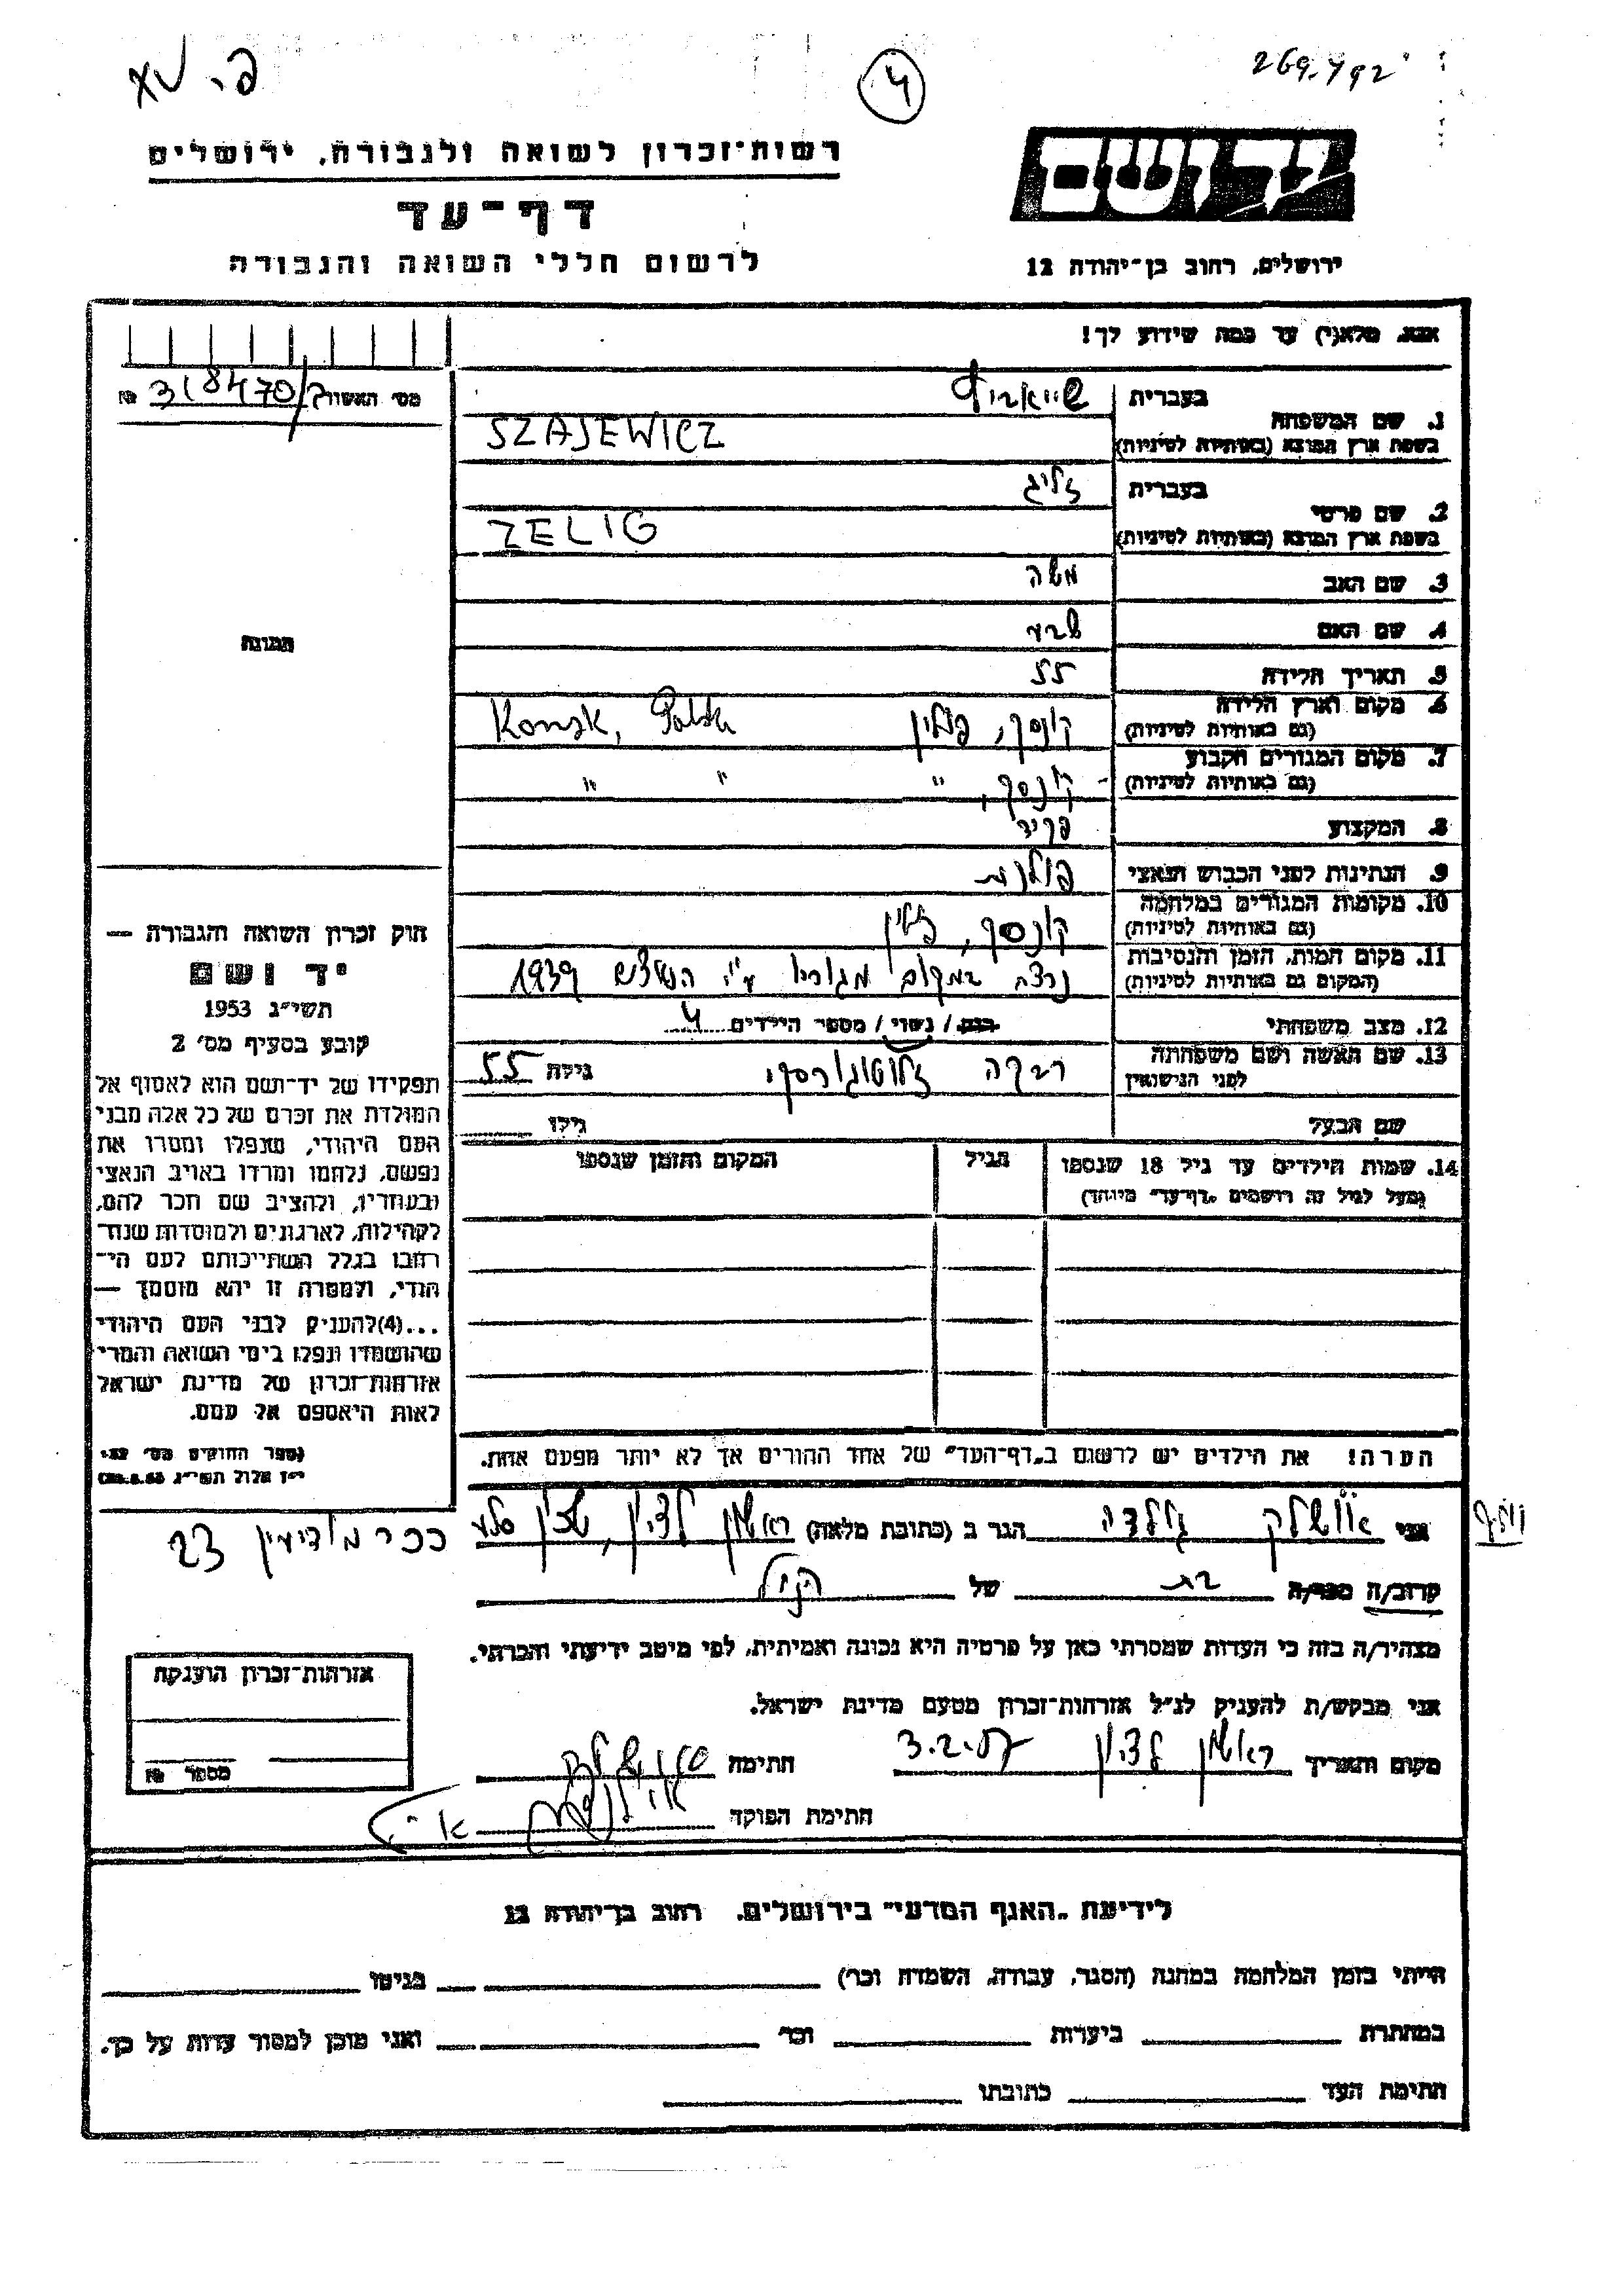 פ. שא
4
269.492
רשות־זכרון לשואה ולגבורה, ירושלים
יד ושם
דף־עד
לרשום חללי השואה והגבורה
ירושלים, רחוב בן־יהודה 12
אנא, מלא(י) עד כמה שידוע לך!
מס׳ האשור № 318470/
1. שם המשפחה בעברית
בשפת ארץ המוצא (באותיות לטיניות) SZAJEWICZ
2. שם פרטי בעברית זליג
בשפת ארץ המוצא (באותיות לטיניות) ZELIG
3. שם האב משה
4. שם האם
תמונה
5. תאריך הלידה 55
6. מקום וארץ הלידה (גם באותיות לטיניות) קונסק, פולין Konsk, Polska
7. מקום המגורים הקבוע (גם באותיות לטיניות) קונסק, " " "
8. המקצוע
9. הנתינות לפני הכבוש הנאצי פולנית
10. מקומות המגורים במלחמה (גם באותיות לטיניות) קונסק, פולין
11. מקום המות, הזמן והנסיבות (המקום גם באותיות לטיניות) נרצח במקום מגוריו ע"י 1939
12. מצב משפחתי רווק / נשוי / מספר הילדים 4
13. שם האשה ושם משפחתה לפני הנישואין רבקה גילה 55
שם הבעל גילו
14. שמות הילדים עד גיל 18 שנספו הגיל המקום והזמן שנספו
(מעל לגיל זה רושמים „דף־עד״ מיוחד)
חוק זכרון השואה והגבורה —
יד ושם
תשי״ג 1953
קובע בסעיף מס׳ 2
תפקידו של יד־ושם הוא לאסוף אל
המולדת את זכרם של כל אלה מבני
העם היהודי, שנפלו ומסרו את
נפשם, נלחמו ומרדו באויב הנאצי
ובעוזריו, ולהציב שם וזכר להם,
לקהילות, לארגונים ולמוסדות שנח־
רבו בגלל השתייכותם לעם הי־
הודי, ולמטרה זו יהא מוסמך —
...(4)להעניק לבני העם היהודי
שהושמדו ונפלו בימי השואה והמרי
אזרחות־זכרון של מדינת ישראל
לאות היאספם אל עמם.
(ספר החוקים מס׳ 132
י״ז אלול תשי״ג 28.8.53)
הערה! את הילדים יש לרשום ב„דף־העד״ של אחד ההורים אך לא יותר מפעם אחת.
אני גולדה הגר ב (כתובת מלאה) ראשון לציון, שכון סלע
ככר מודיעין 23
קרוב/ה מכר/ה בת של הנ"ל
מצהיר/ה בזה כי העדות שמסרתי כאן על פרטיה היא נכונה ואמיתית, לפי מיטב ידיעתי והכרתי.
אני מבקש/ת להעניק לנ״ל אזרחות־זכרון מטעם מדינת ישראל.
מקום ותאריך ראשון לציון 3.2.57 חתימה
חתימת הפוקד
אזרחות־זכרון הוענקה
מספר №
לידיעת „האגף המדעי״ בירושלים, רחוב בן־יהודה 12
הייתי בזמן המלחמה במחנה (הסגר, עבודה, השמדה וכו׳) בגיטו
במחתרת ביערות וכו׳ ואני מוכן למסור עדות על כך.
חתימת העד כתובתו